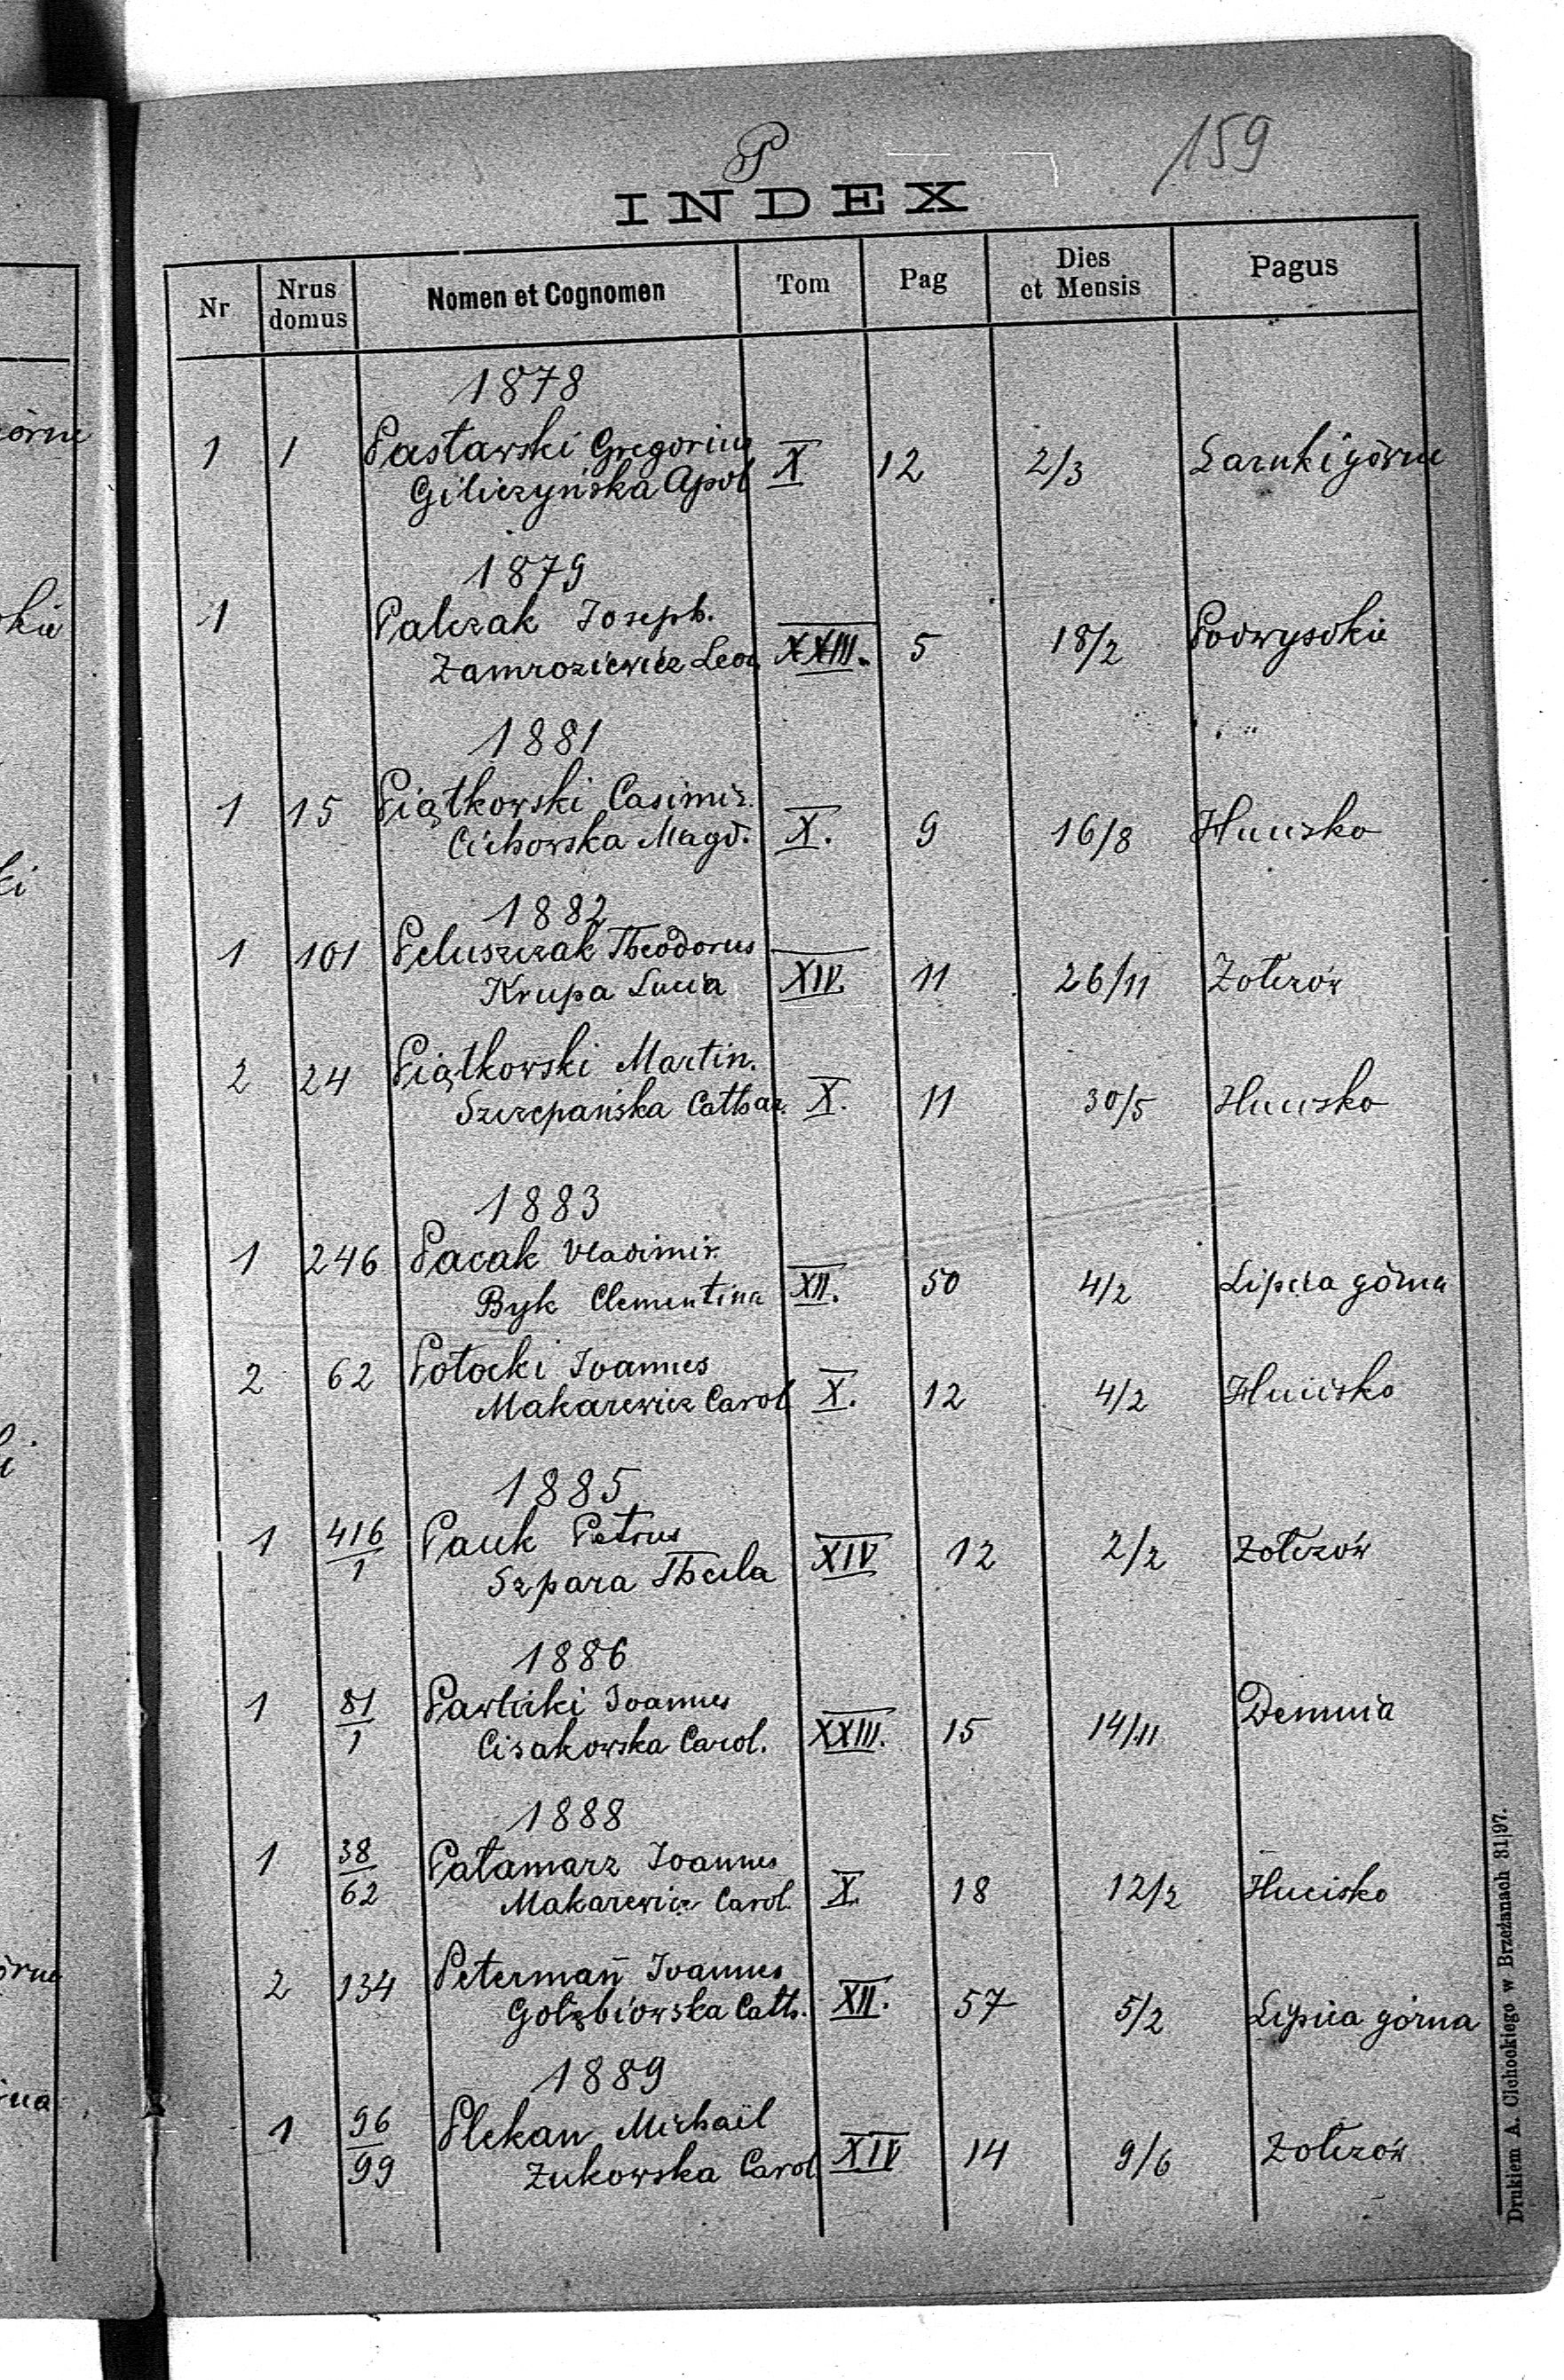 159
P
INDEX
Nr Nrus domus Nomen et Cognomen Tom Pag Dies et Mensis Pagus
1878
1 1 Pastawski Gregorius X 12 2/3 Sarnki górne
Giliczyńska Apol
1879
1 Palczak Joseph. XXIII. 5 18/2 Podwysokie
Zamroziewicz Leon
1881
1 15 Piątkowski Casimir. X. 9 16/8 Hucisko
Cichowska Magd.
1882
1 101 Peluszczak Theodorus XIV. 11 26/11 Zołczów
Krupa Lucia
2 24 Piątkowski Martin. X. 11 30/5 Hucisko
Szczepańska Cathar.
1883
1 246 Pacak Vladimir. XII. 50 4/2 Lipica górna
Byk Clementina
2 62 Potocki Joannes X. 12 4/2 Hucisko
Makarewicz Carol
1885
1 416/1 Pauk Petrus XIV 12 2/2 Zołczów
Szpara Thecla
1886
1 81/1 Pawlicki Joannes XXIII. 15 14/11 Demnia
Cisakowska Carol.
1888
1 38/62 Pałamarz Joannes X. 18 12/2 Hucisko
Makarewicz Carol.
2 134 Petermañ Joannes XII. 57 5/2 Lipica górna
Gołębiowska Cath.
1889
1 96/99 Plekan Michaël XIV 14 9/6 Zołczów
Zukowska Carol
Drukiem A. Cichockiego w Brzeżanach 31|97.